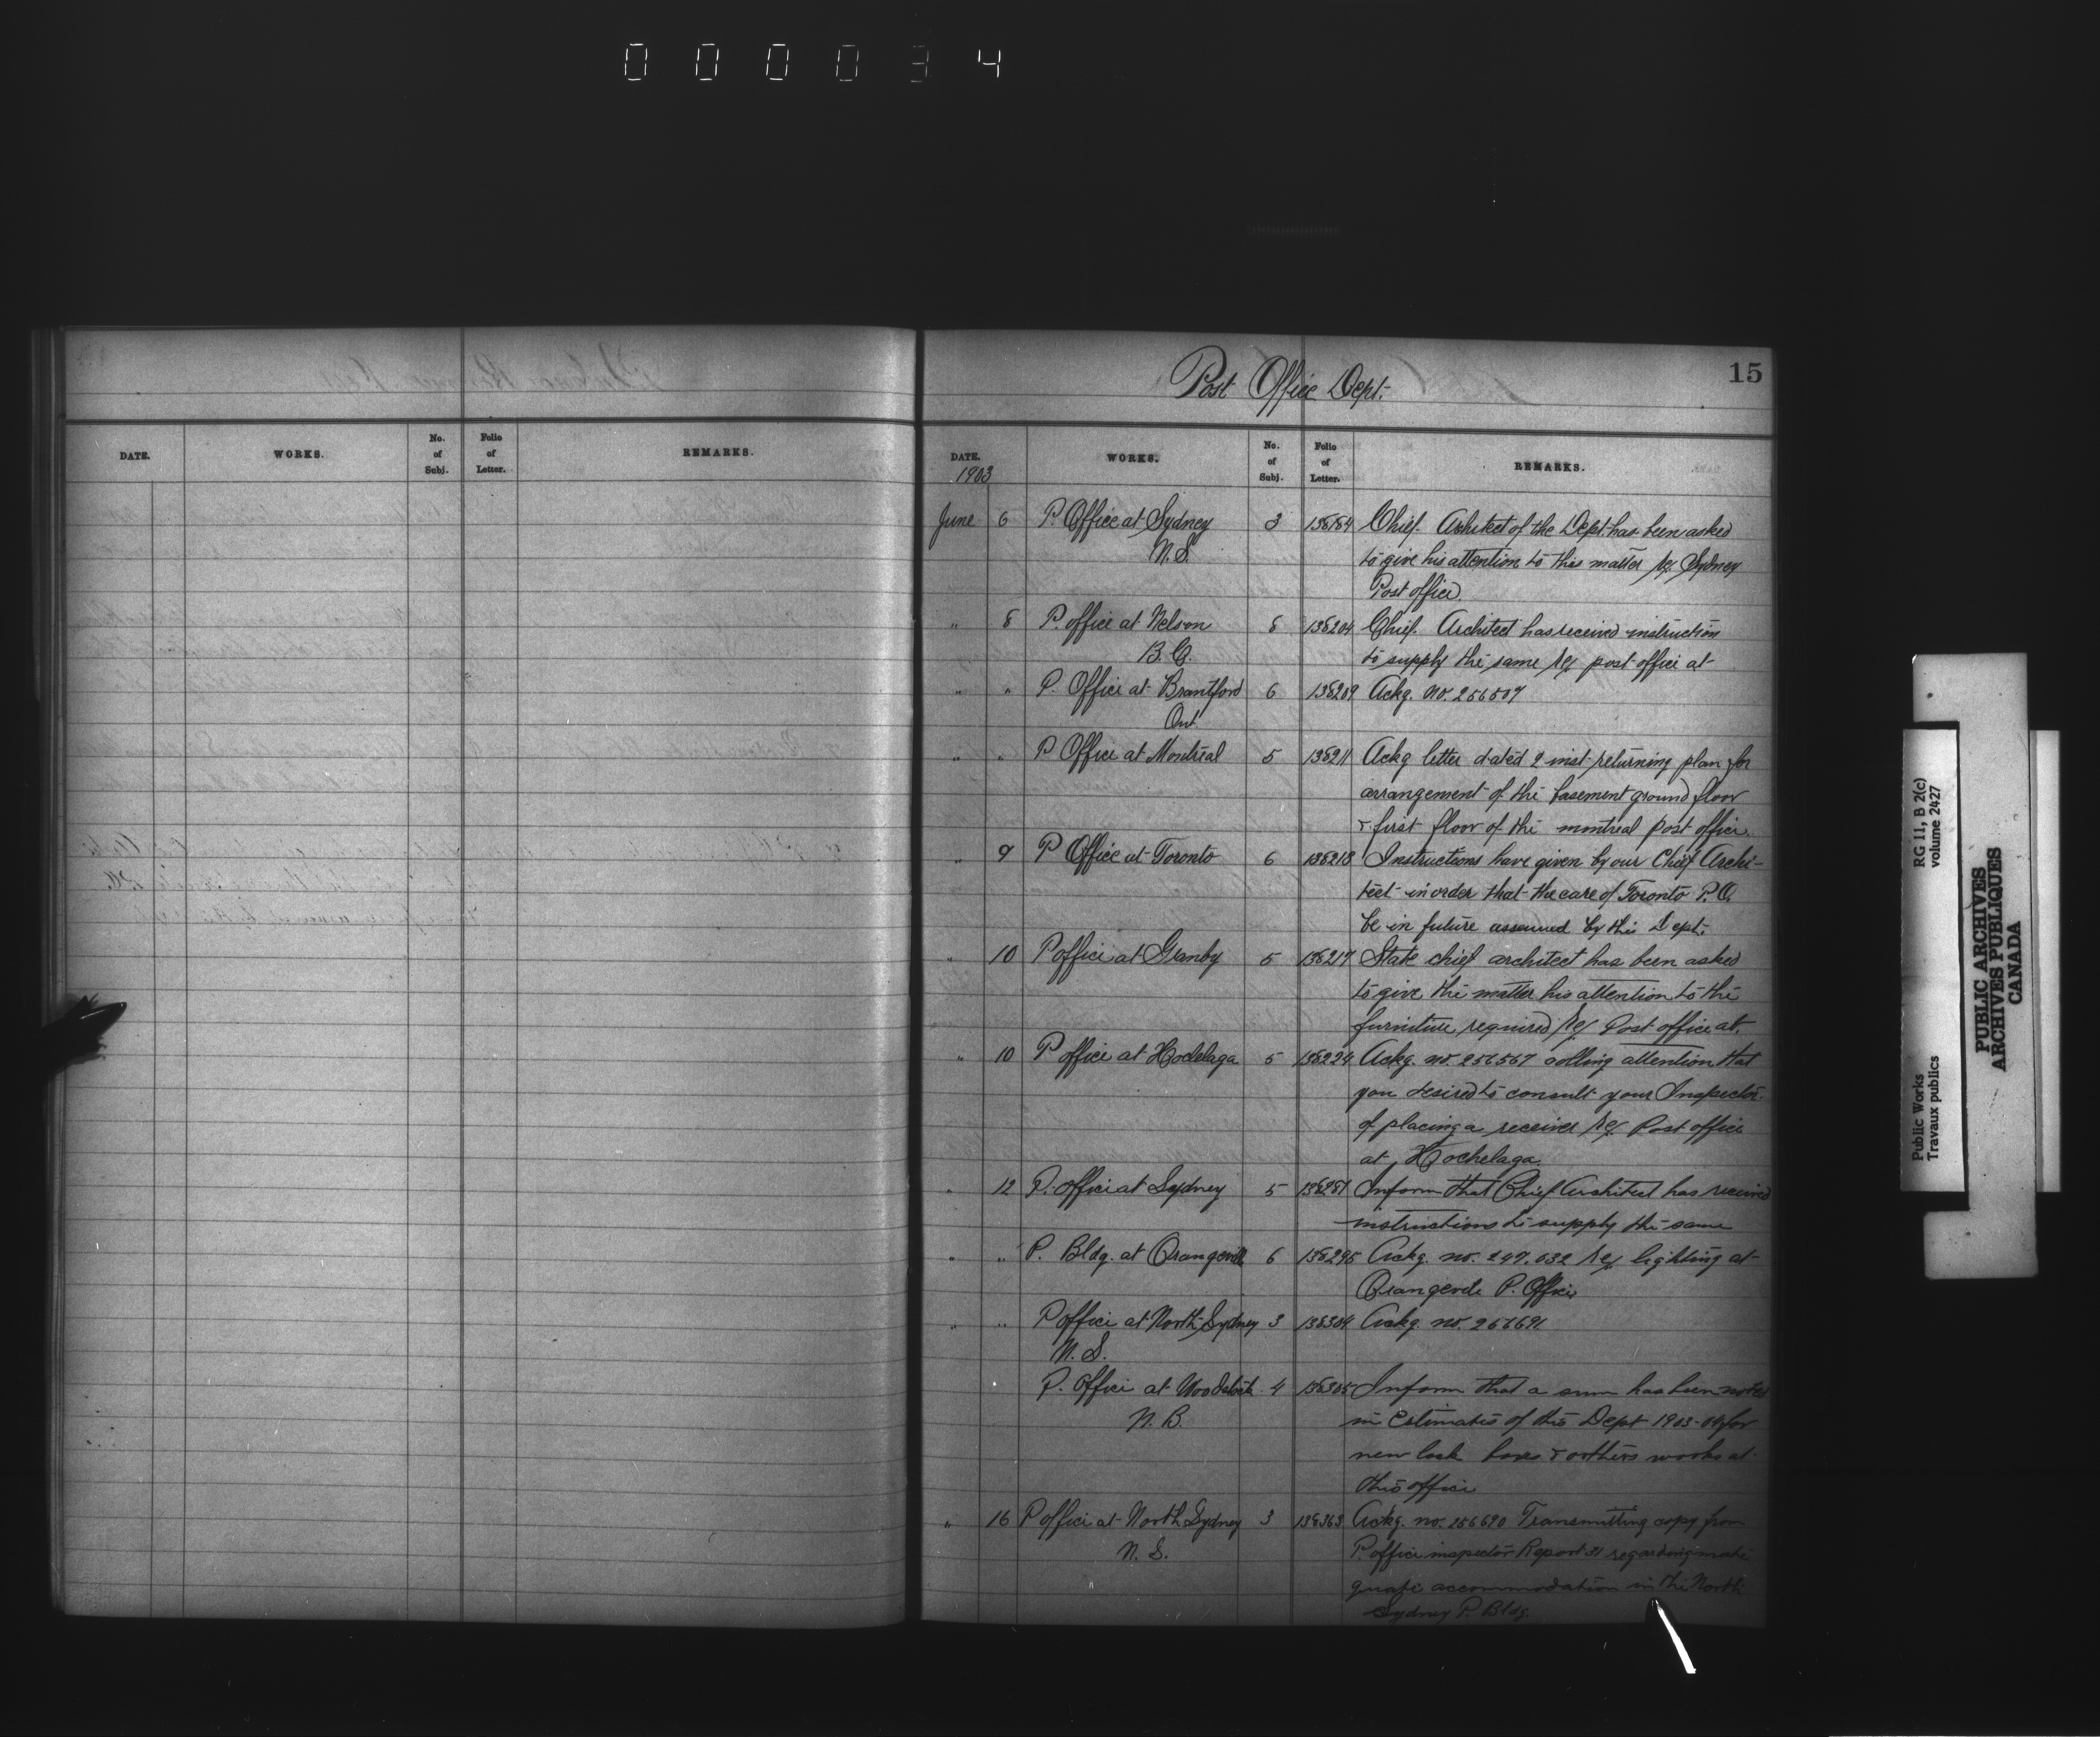 000034
Post Office Dept.
15
DATE. WORKS. No. of Subj. Folio of Letter. REMARKS.
DATE. WORKS. No. of Subj. Folio of Letter. REMARKS.
1903
June 6 P. Office at Sydney 3 138184 Chief. Architect of the Dept. has been asked
N.S. to give his attention to this matter re Sydney
Post office.
" 8 P. office at Nelson 8 138204 Chief. Architect has received instruction
B.C. to supply the same re post office at
" " P. Office at Brantford 6 138209 Ackg. no. 256507
Ont
" " P Office at Montreal 5 138211 Ackg letter dated 2 inst returning plan for
arrangement of the basement ground floor
& first floor of the montreal post office.
" 9 P Office at Toronto 6 138213 Instructions have given by our Chief Archi-
tect in order that the care of Toronto P.O.
be in future assumed by this Dept.
" 10 P office at Granby 5 138217 State chief architect has been asked
to give the matter his attention to the
furniture required re Post office at.
" 10 P office at Hochelaga 5 138224 Ackg. no. 256567 calling attention that
you desired to consult your Inspector
of placing a receiver re Post office
at Hochelaga
" 12 P. office at Sydney 5 138281 Inform that Chief Architect has received
instructions to supply the same
" " P. Bldg. at Orangeville 6 138295 Ackg. no. 247.032 re lighting at
Orangevile P. Office
" " P office at North Sydney 3 138304 Ackg. no. 256691.
N. S.
P. Office at Woodstock 4 138305 Inform that a sum has been noted
N. B. in Estimates of this Dept 1903-04 for
new lock boxes & others works at
this office
" 16 P office at North Sydney 3 138363 Ackg. no. 256690 Transmitting copy from
N. S. P. office inspector Report 31 regarding
accommodation in the North
Sydney P. Bldg.
Public Works RG 11, B 2(c)
Travaux publics volume 2427
PUBLIC ARCHIVES
ARCHIVES PUBLIQUES
CANADA